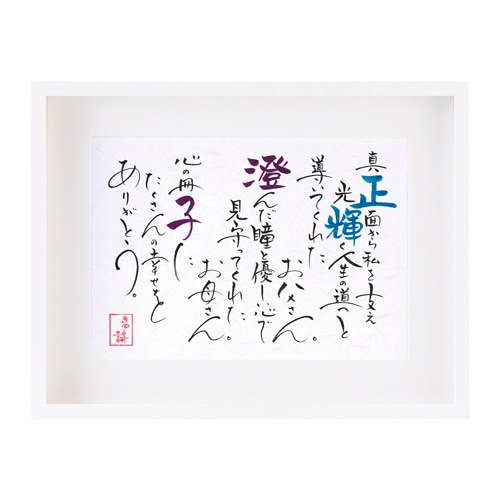 真正面から私を支え
光輝く人生の道へと
導いてくれた
お父さん。
澄んだ瞳と優しい心で
見守ってくれた
お母さん。
心の冊子に
たくさんの幸せをと
ありがとう。